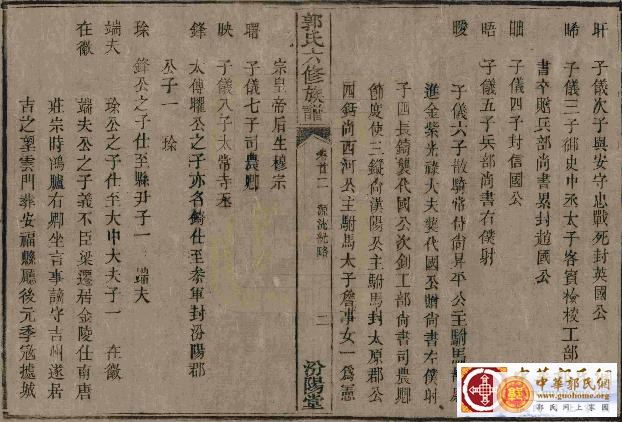 旰 子儀次子與安守忠戰死封英國公
晞 子儀三子御史中丞太子客賓檢校工部
書卒贈兵部尚書累封趙國公
昢 子儀四子封信國公
晤 子儀五子兵部尚書右僕射
曖 子儀六子散騎常侍尚昇平公主駙馬
進金紫光祿大夫襲代國公贈尚書左僕射
子四長鑄襲代國公次釗工部尚書司農卿
節度使三鏦尚漢陽公主駙馬封太原郡公
四銛尚西河公主駙馬太子詹事女一為憲
郭氏六修族譜
卷首二 源流紀略
二
汾陽堂
宗皇帝后生穆宗
曙 子儀七子司農卿
映 子儀八子太常寺丞
鋒 太傅曜公之子亦名錡仕至參軍封汾陽郡
公子一 琮
琮 鋒公之子仕至縣尹子一 端夫
端夫 琮公之子仕至大中大夫子一 在徽
在徽 端夫公之子義不臣梁遷居金陵仕南唐
莊宗時鴻臚右卿坐言事謫守吉州遂居
吉之葉雲門葬安福縣廳後元季寇據城
中華郭氏網
www.guohome.org
郭氏網上家園